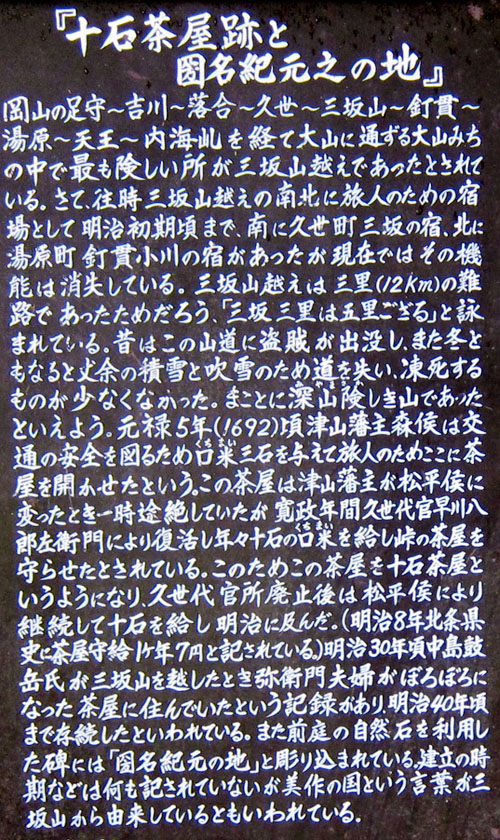 『十石茶屋跡と
圀名紀元之の地』
岡山の足守～吉川～落合～久世～三坂山～釘貫～
湯原～天王～内海乢を経て大山に通ずる大山みち
の中で最も険しい所が三坂山越えであったとされて
いる。さて、往時三坂山越えの南北に旅人のための宿
場として明治初期頃まで、南に久世町三坂の宿、北に
湯原町釘貫小川の宿があったが現在ではその機
能は消失している。三坂山越えは三里(12Km)の難
路であったためだろう、「三坂三里は五里ござる」と詠
まれている。昔はこの山道に盗賊が出没し、また冬と
もなると丈余の積雪と吹雪のため道を失い、凍死する
ものが少なくなかった。まことに深山険しき山であった
といえよう。元禄5年(1692)頃津山藩主森侯は交
通の安全を図るため口米三石を与えて旅人のためここに茶
屋を開かせたという。この茶屋は津山藩主が松平侯に
変ったとき一時途絶していたが寛政年間久世代官早川八
郎左衛門により復活し年々十石の口米を給し峠の茶屋を
守らせたとされている。このためこの茶屋を十石茶屋と
いうようになり、久世代官所廃止後は松平侯により
継続して十石を給し明治に及んだ。(明治8年北条県
史に茶屋守給1ケ年7円と記されている)明治30年頃中島鼓
岳氏が三坂山を越したとき弥衛門夫婦がぼろぼろに
なった茶屋に住んでいたという記録があり、明治40年頃
まで存続したといわれている。また前庭の自然石を利用し
た碑には「圀名紀元の地」と彫り込まれている。建立の時
期などは何も記されていないが美作の国という言葉が三
坂山から由来しているともいわれている。